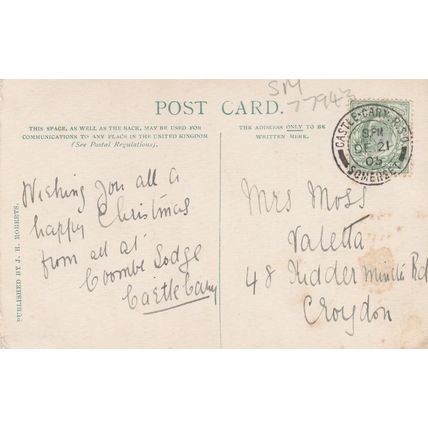 SM
77943
POST CARD.
THIS SPACE, AS WELL AS THE BACK, MAY BE USED FOR
COMMUNICATIONS TO ANY PLACE IN THE UNITED KINGDOM
(See Postal Regulations).
THE ADDRESS ONLY TO BE
WRITTEN HERE.
CASTLE-CARY-R.S.O
8 PM
DE 21
SOMERSET
Wishing you all a
happy Christmas
from all at
Coombe Lodge
Castle Cary
Mrs Moss
Valetta
48 Kidderminster Rd
Croydon
PUBLISHED BY J. H. ROBERTS.